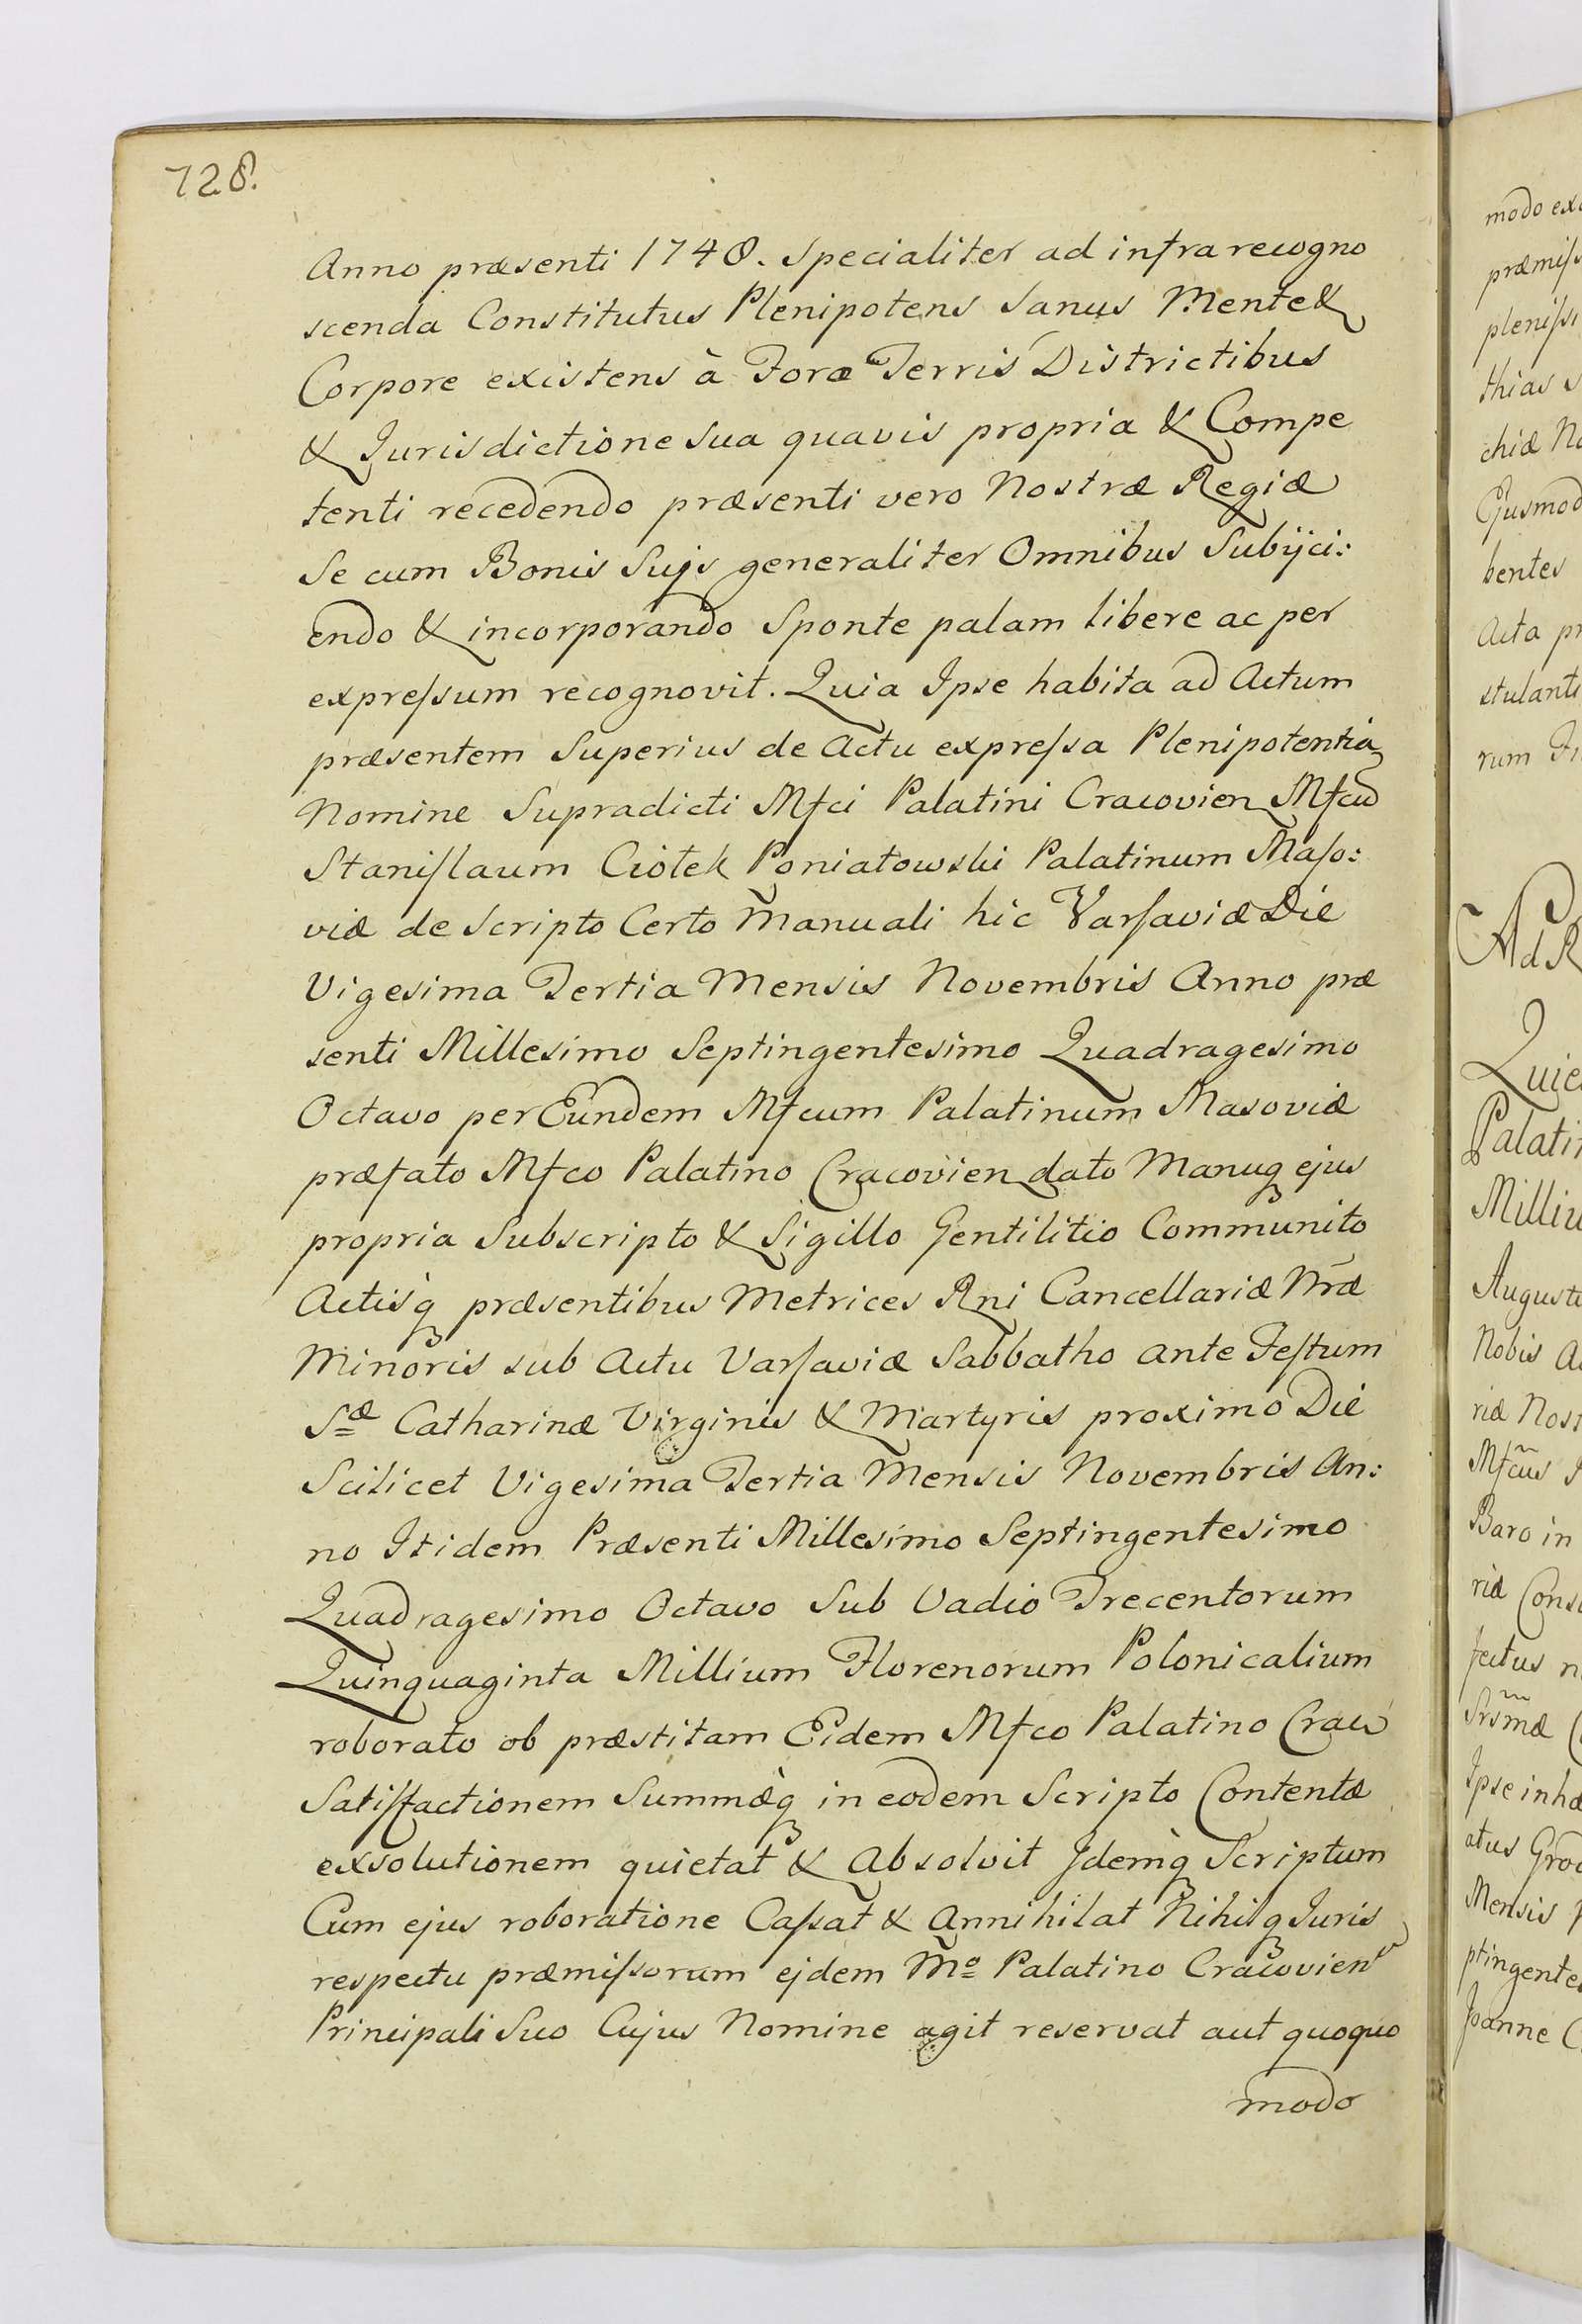 728.
Anno præsenti 1748. Specialiter ad infra recogno
scenda Constitutus Plenipotens Sanus Mente &
Corpore existens à Foræ Terris Districtibus
& Jurisdictione Sua quavis propria & Compe
tenti recedendo præsenti vero Nostræ Regiæ
Se cum Bonis Suis generaliter Omnibus Subijci:
endo & incorporando Sponte palam libere ac per
expreſsum recognovit. Quia Ipse habita ad Actum
præsentem Superius de Actu expreſsa Plenipotentia
Nomine Supradicti Mfci Palatini Cracovien Mfcu
Staniſlaum Ciołek Poniatowski Palatinum Maſo:
viæ de Scripto Certo Manuali hic Varſaviæ Die
Vigesima Tertia Mensis Novembris Anno præ
senti Millesimo Septingentesimo Quadragesimo
Octavo per Eundem Mfcum Palatinum Masoviæ
præfato Mfco Palatino Cracovien dato Manuq ejus
propria Subscripto & Sigillo Gentilitio Communito
Actisq præsentibus Metrices Rni Cancellariæ Nræ
Minoris sub Actu Varſaviæ Sabbatho ante Feſtum
Sæ Catharinæ Virginis & Martyris proximo Die
Scilicet Vigesima Tertia Mensis Novembris An:
no Itidem Præsenti Millesimo Septingentesimo
Quadragesimo Octavo Sub Vadio Trecentorum
Quinquaginta Millium Florenorum Polonicalium
roborato ob præstitam Eidem Mfco Palatino Crac
Satiſfactionem Summæq in eodem Scripto Contentæ
exsolutionem quietat & Absolvit Idemq Scriptum
Cum ejus roboratione Caſsat & Annihilat Nihilq Juris
respectu præmiſsorum ejdem Mo Palatino Cracovien
Principali Suo Cujus Nomine agit reservat aut quoquo
modo
modo
præmiſs
pleniſsi
thias
chiæ
Ejusmod
bentes
Acta
stulanti
rum
Ad
Palati
Milliu
August
Nobis
riæ Nos
Mfcus
Baro in
riæ Cons
fectus
Srsmæ
Ipse inhæ
atus
Mensis
ptingente
Joanne